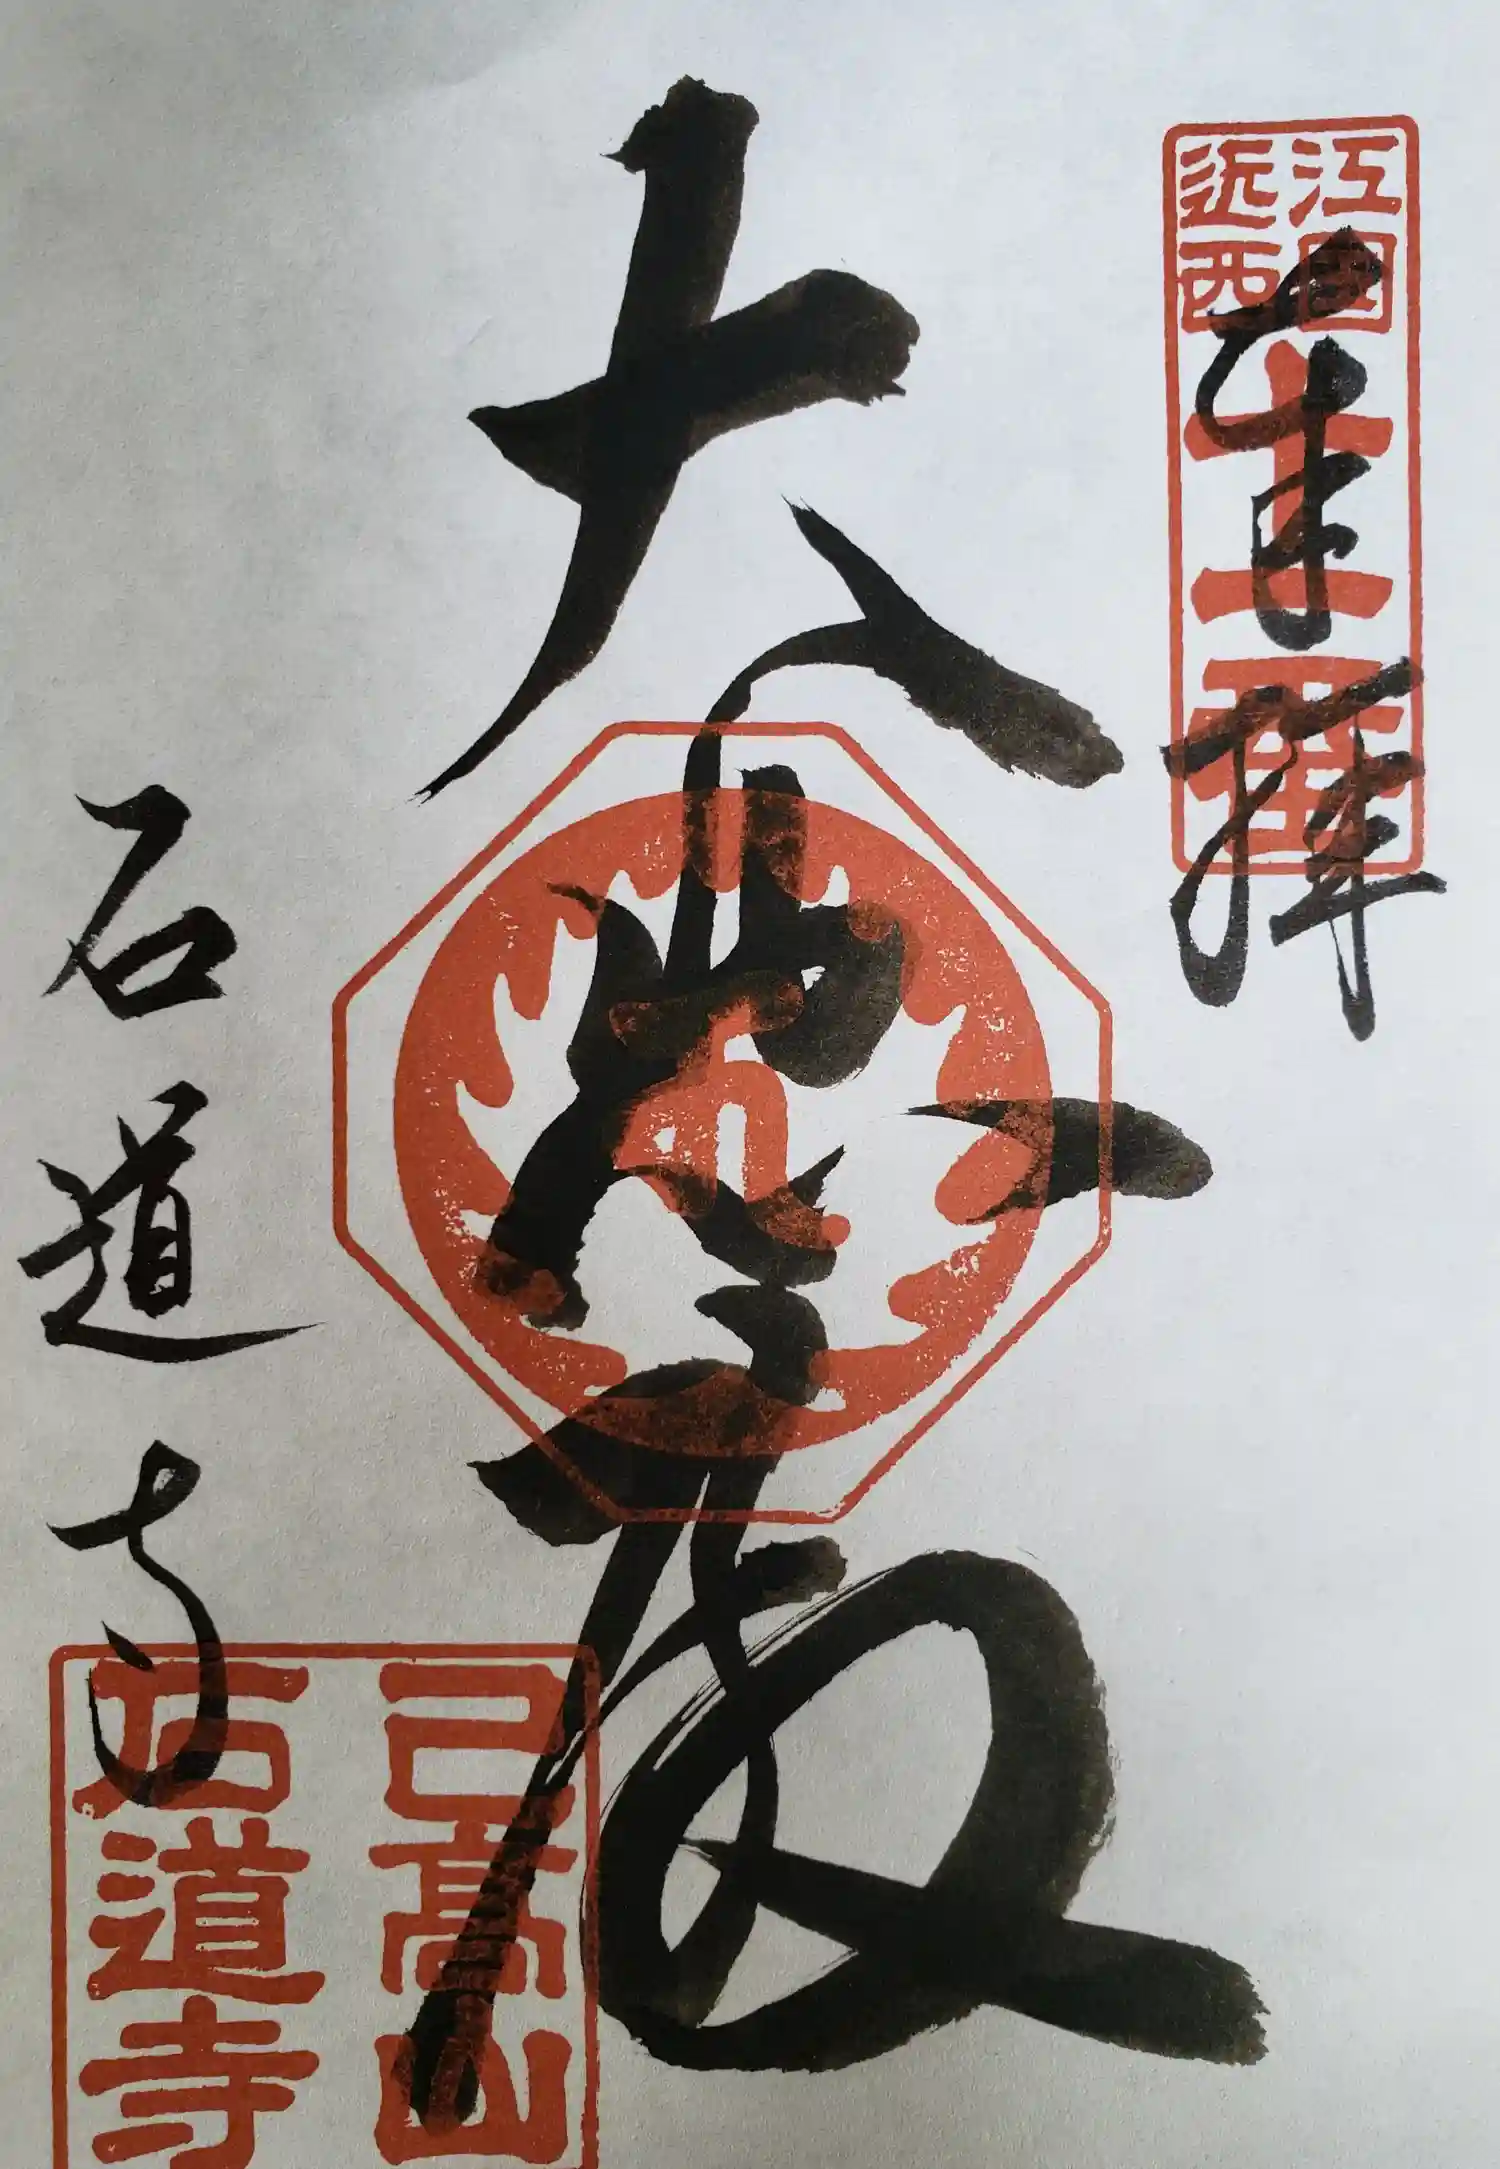 近江
西國
十一番
奉拝
大悲殿
石道寺
己高山
石道寺